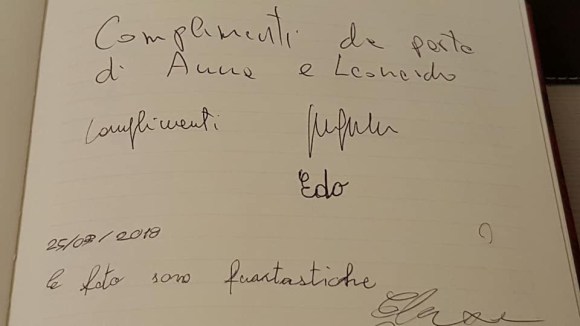 Complimenti da parte
di Anna e Leonardo
Complimenti
Edo
25/08/2018
le foto sono fantastiche